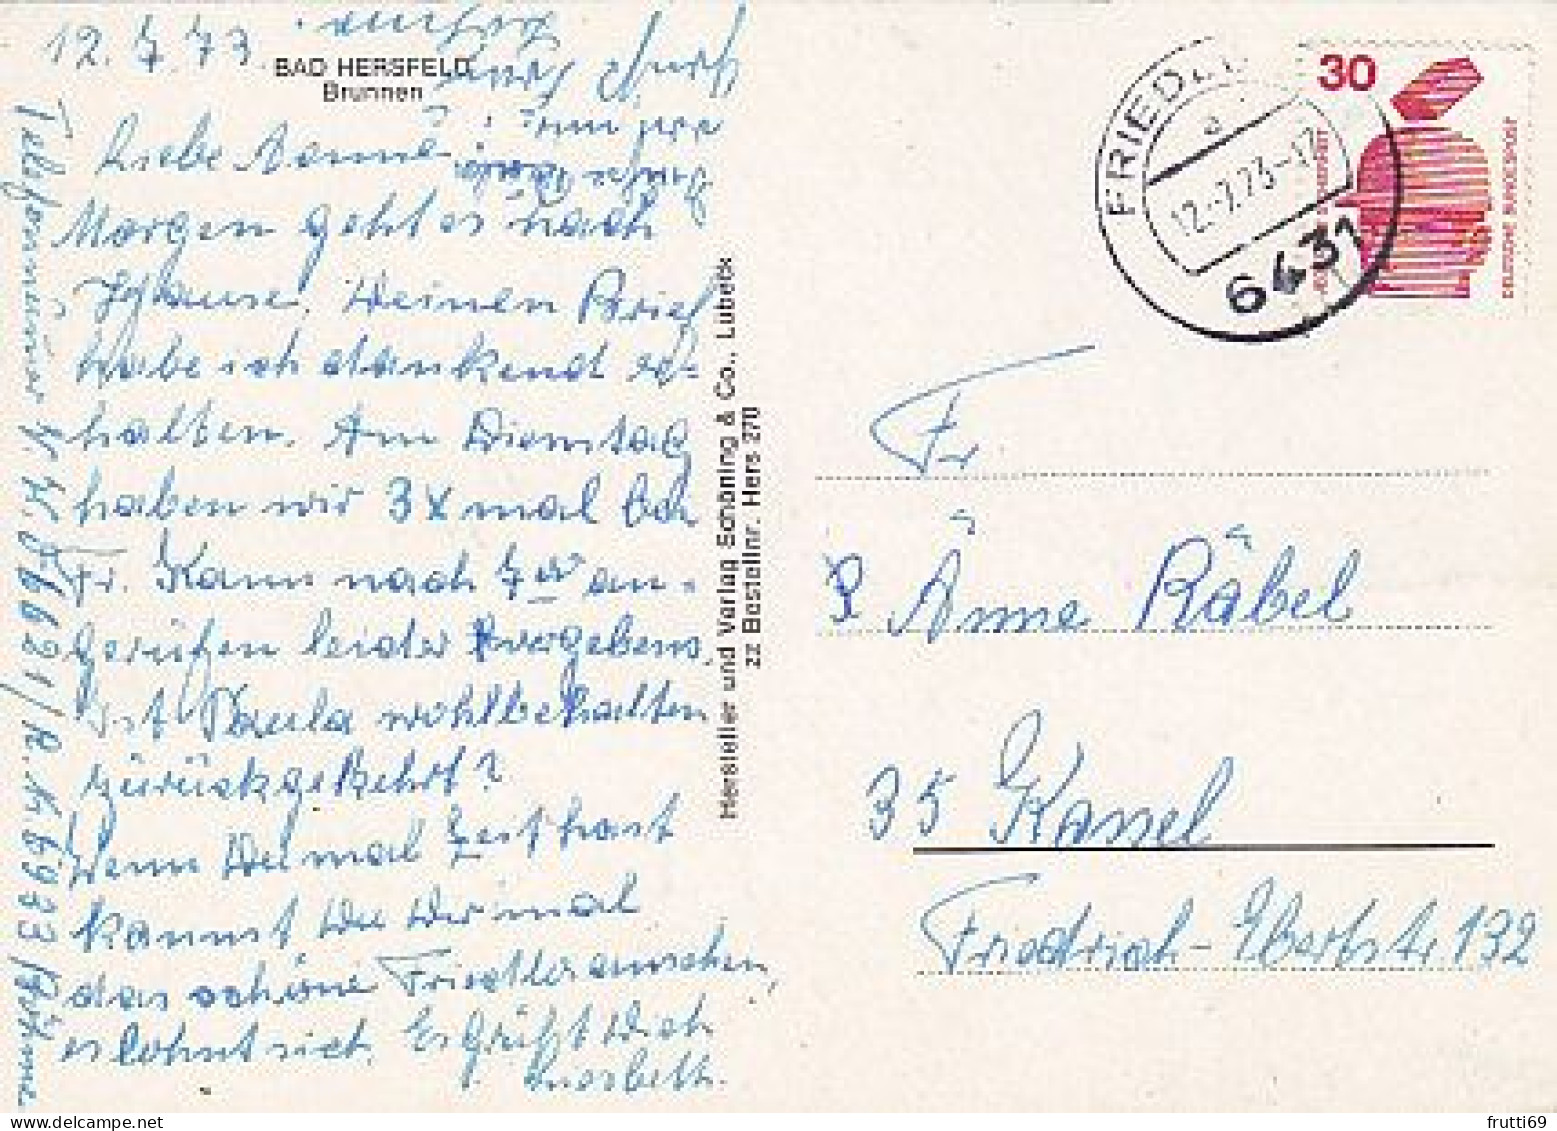 12.7.73.
BAD HERSFELD
Brunnen
Liebe Änne
Morgen geht es nach
Hause. Deinen Brief
habe ich dankend er-
halten. Am Dienstag
haben wir 3x mal bei
Fr. Kann nach 7 Uhr an-
gerufen leider vergebens.
Ist Paula wohlbehalten
zurückgekehrt?
Wenn Du mal Zeit hast
kannst Du Dir mal
das schöne Friedlos ansehen,
es lohnt sich. Es grüßt Dich
Liesbeth.
Telefonnummer
Hersteller und Verlag Schöning & Co., Lübeck
zz Bestellnr. Hers 270
30
DEUTSCHE BUNDESPOST
FRIED
a
12.-7.73-17
6431
Fr.
Änne Räbel
35 Kassel
Friedrich-Ebertstr. 132
frutti69